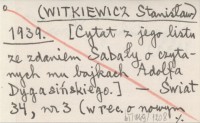 (WITKIEWICZ Stanisław)
1939. [Cytat z jego listu
ze zdaniem Sabały o czyta-
nych mu bajkach Adolfa
Dygasińskiego.] — Świat
34, nr 3 (w rec. o nowym